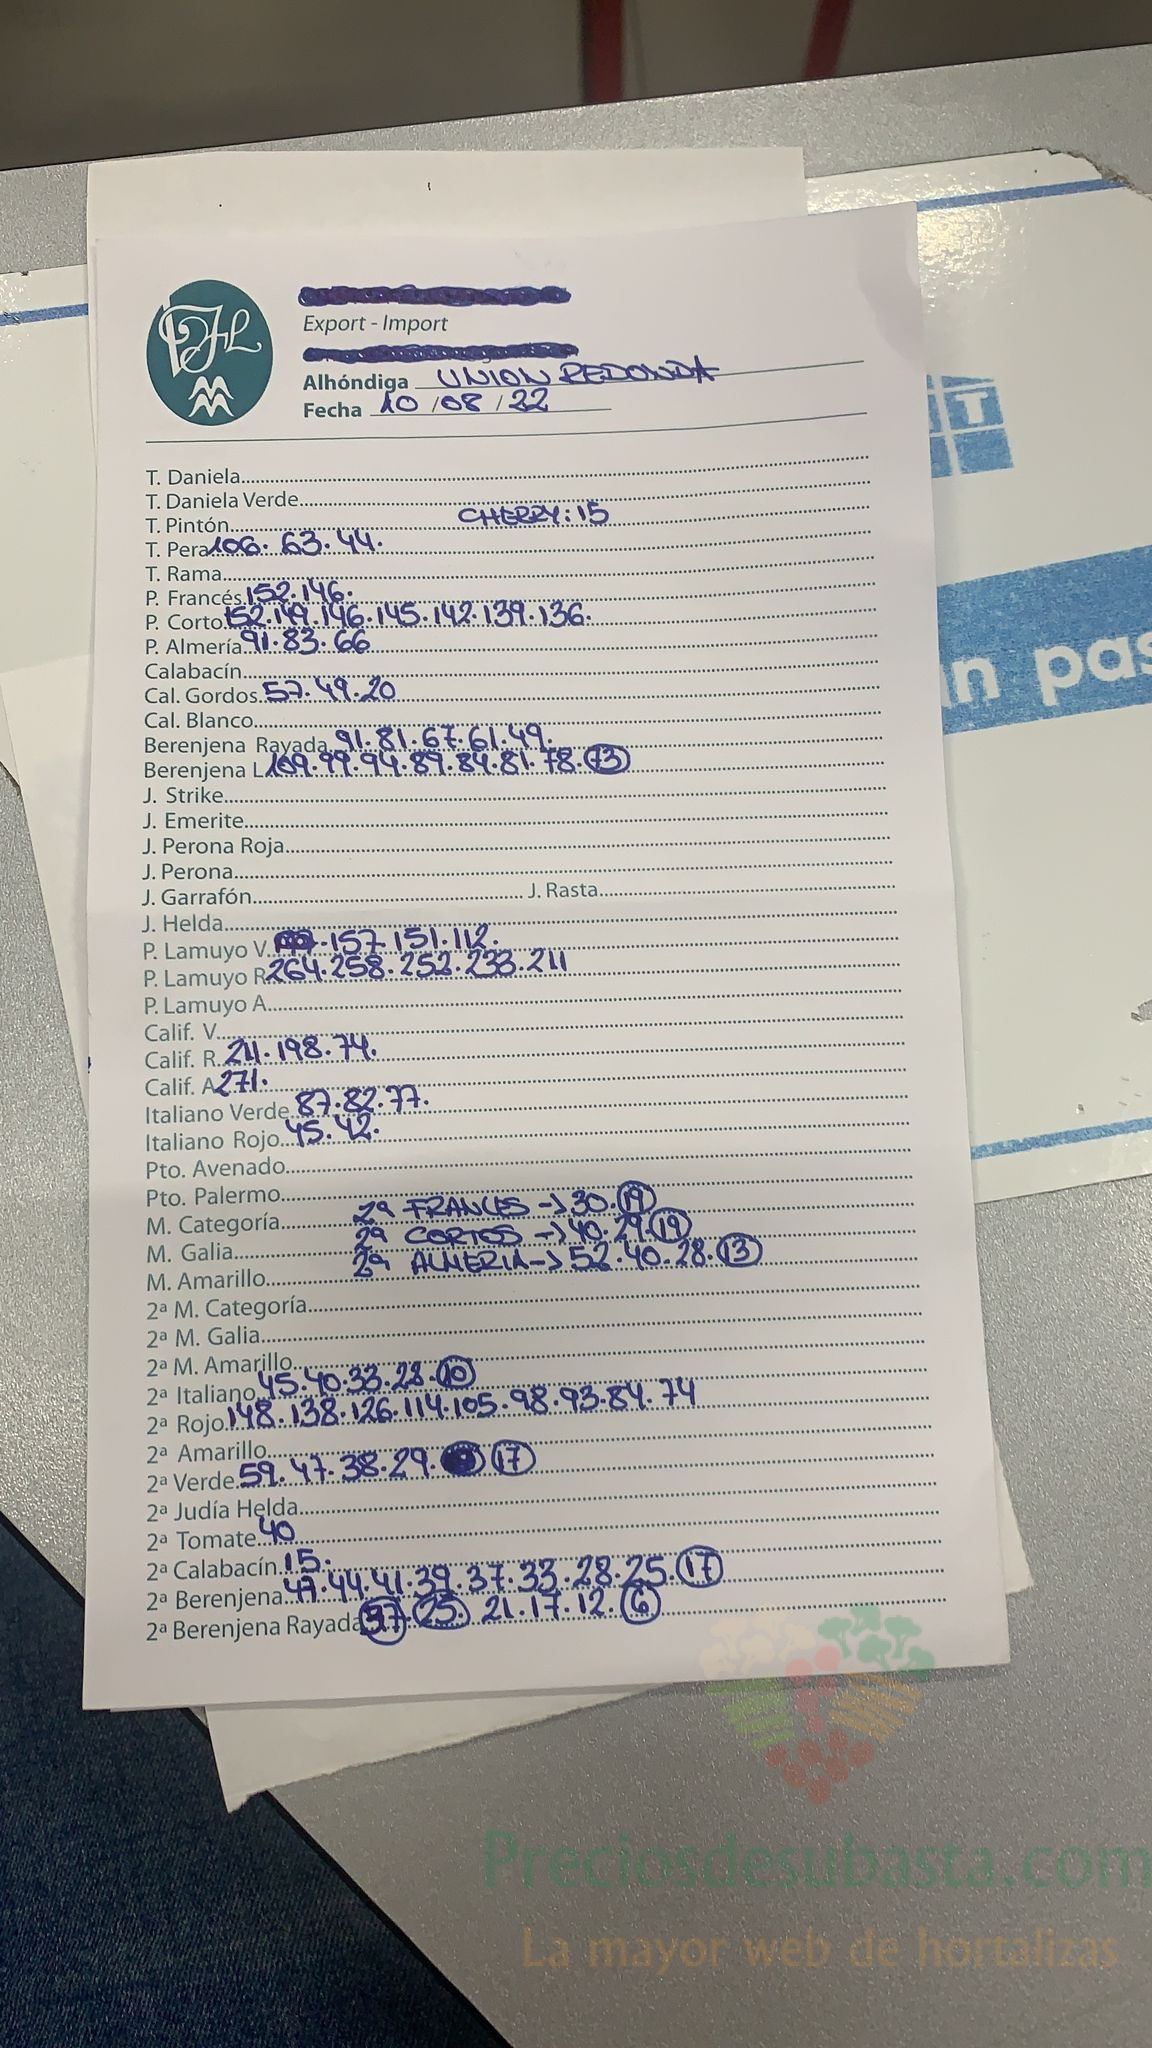 Export - Import
Alhóndiga UNION REDONDA
Fecha 10 / 08 / 22
T. Daniela
T. Daniela Verde
T. Pintón CHERRY: 15
T. Pera 106. 63. 44.
T. Rama
P. Francés 152. 146.
P. Corto 152. 149. 146. 145. 142. 139. 136.
P. Almería 91. 83. 66
Calabacín
Cal. Gordos 57. 49. 20
Cal. Blanco
Berenjena Rayada 91. 81. 67. 61. 49.
Berenjena L 109. 99. 94. 89. 84. 81. 78. 73
J. Strike
J. Emerite
J. Perona Roja
J. Perona
J. Garrafón J. Rasta
J. Helda
P. Lamuyo V. 157. 151. 112.
P. Lamuyo R 264. 258. 252. 233. 211
P. Lamuyo A
Calif. V
Calif. R 211. 198. 74.
Calif. A 271.
Italiano Verde 87. 82. 77.
Italiano Rojo 45. 42.
Pto. Avenado
Pto. Palermo
M. Categoría 2ª FRANCES -> 30. 19
M. Galia 2ª CORTOS -> 40. 29. 19
M. Amarillo 2ª ALMERIA -> 52. 40. 28. 13
2ª M. Categoría
2ª M. Galia
2ª M. Amarillo
2ª Italiano 45. 40. 33. 28. 10
2ª Rojo 148. 138. 126. 114. 105. 98. 93. 84. 74
2ª Amarillo
2ª Verde 59. 47. 38. 29. 17
2ª Judía Helda
2ª Tomate 40
2ª Calabacín 15.
2ª Berenjena 47. 44. 41. 39. 37. 33. 28. 25. 17
2ª Berenjena Rayada 37. 25. 21. 17. 12. 6
T
n pas
Preciosdesubasta.com
La mayor web de hortalizas